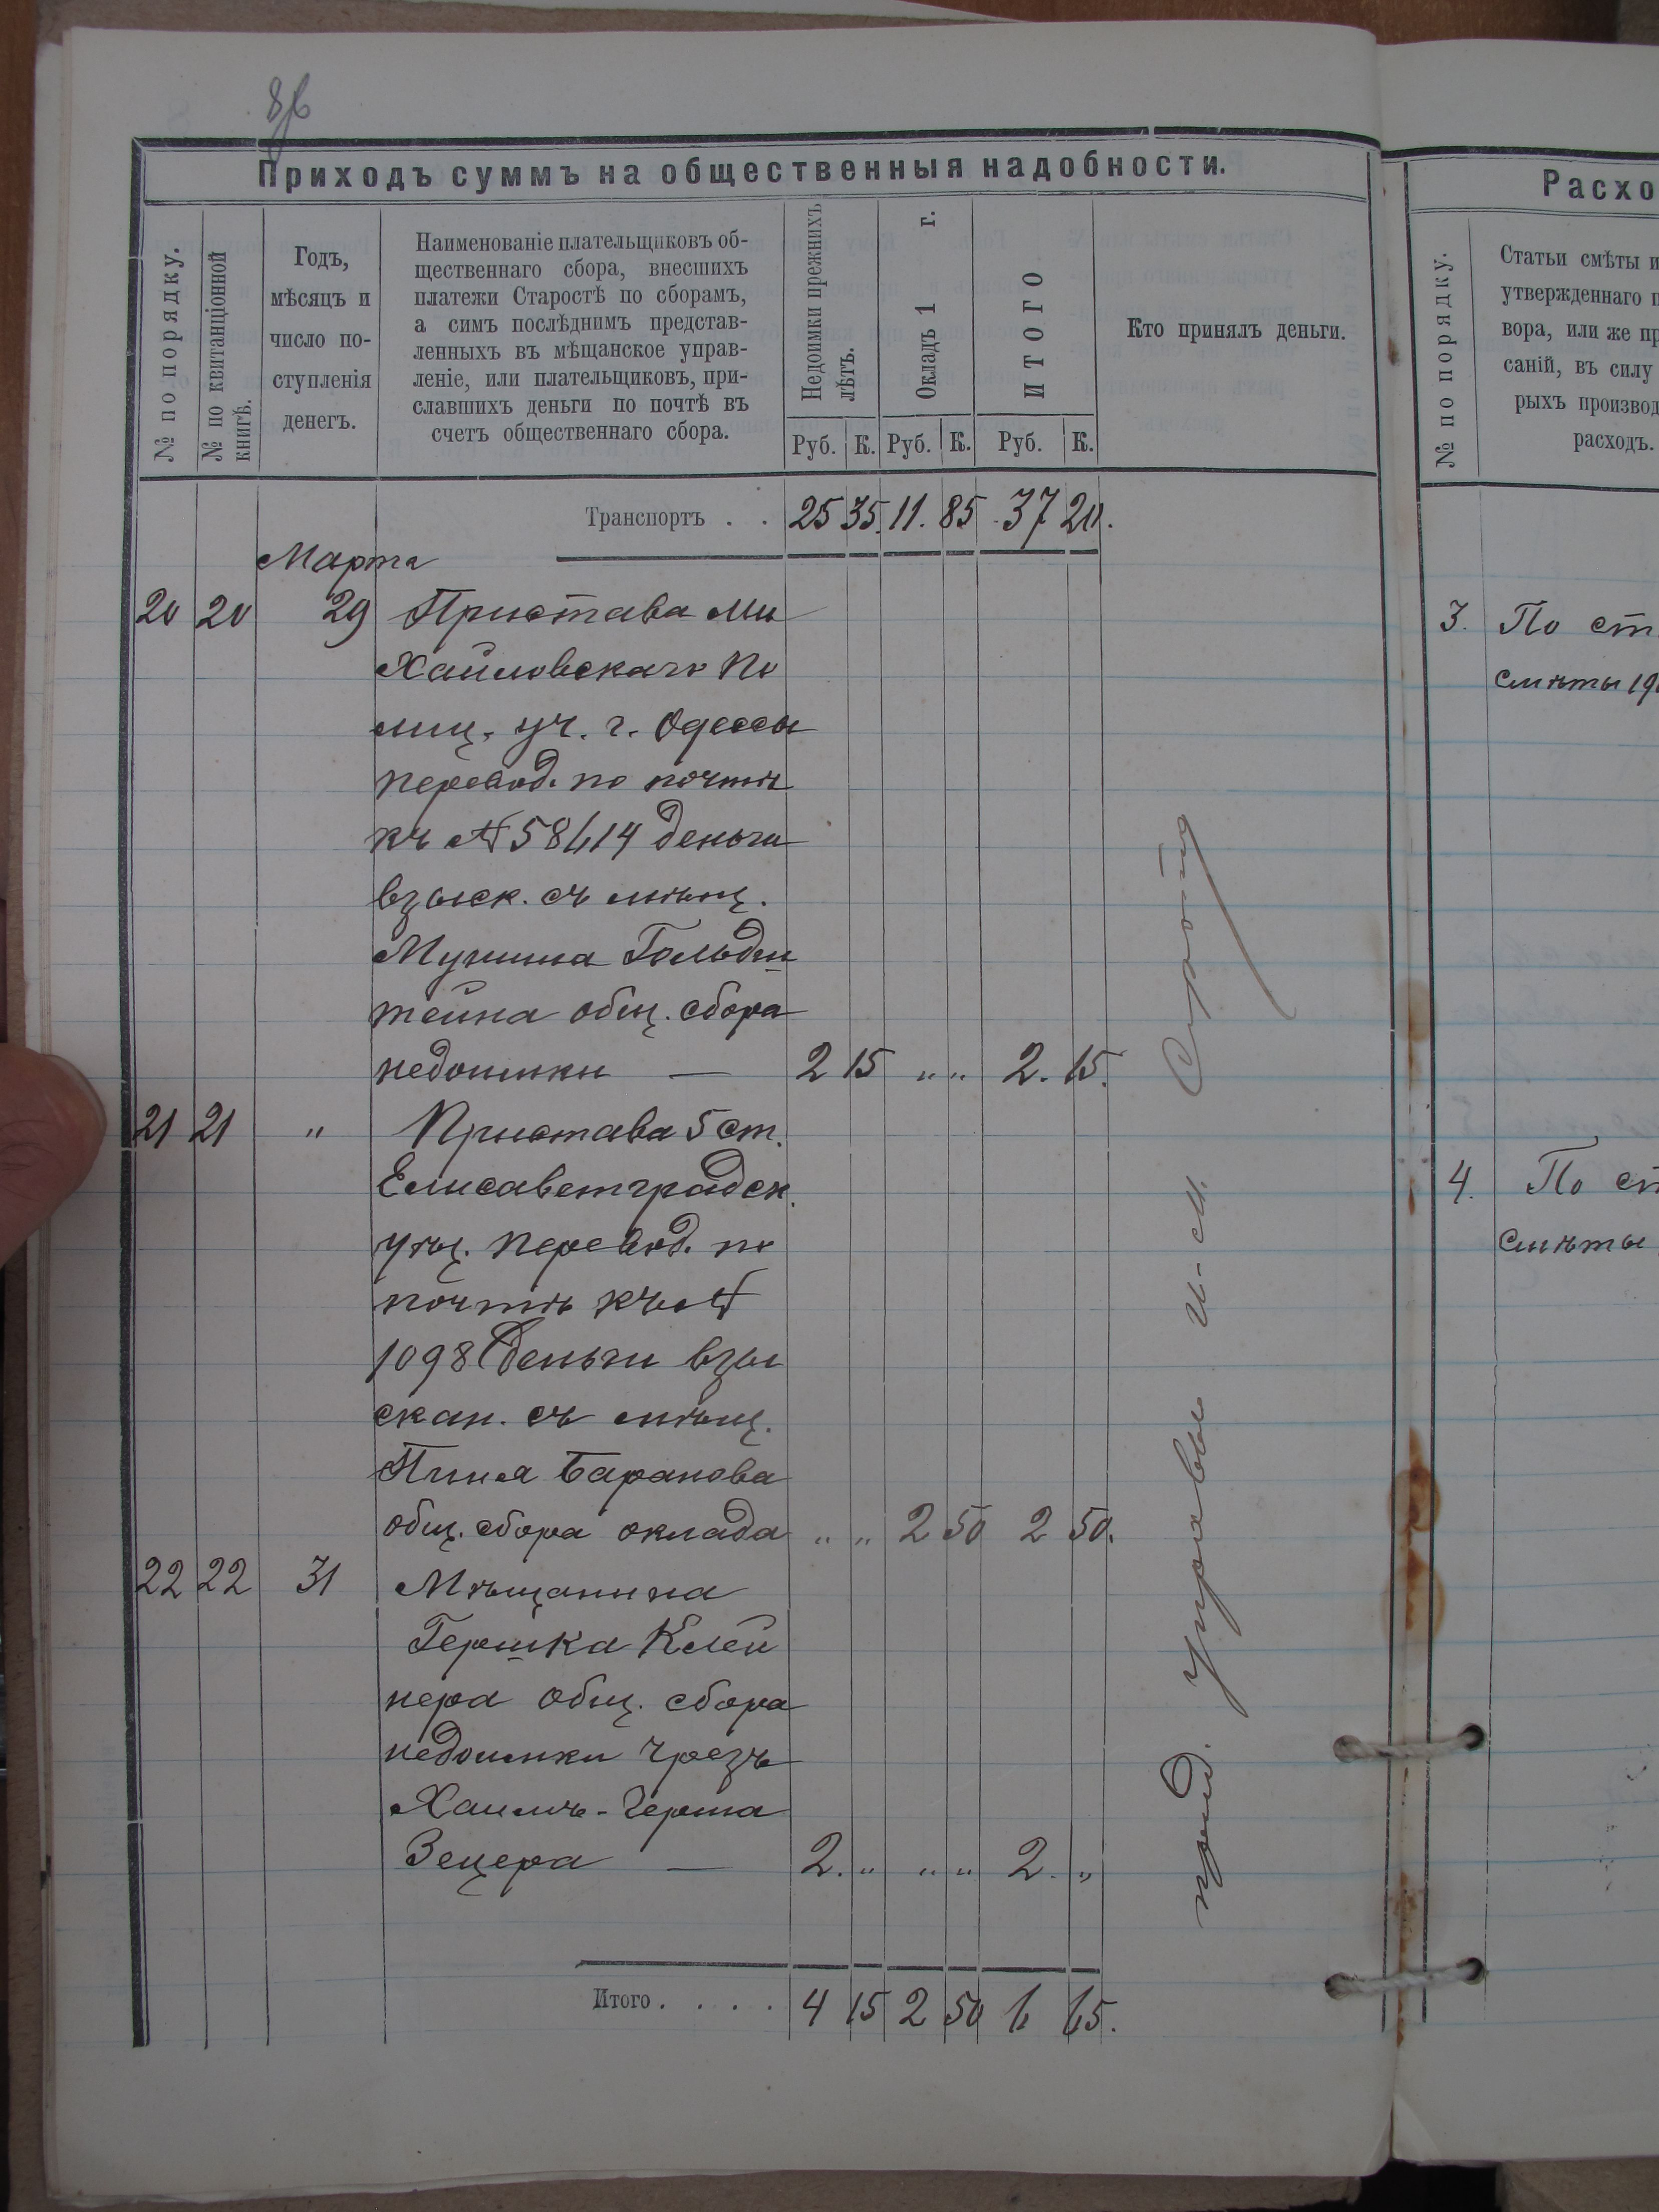 8
Приходъ суммъ на общественныя надобности.
№ по порядку.
№ по квитанціонной
книгѣ.
Годъ,
мѣсяцъ и
число по-
ступленія
денегъ.
Наименованіе плательщиковъ об-
щественнаго сбора, внесшихъ
платежи Старостѣ по сборамъ,
а симъ послѣднимъ представ-
ленныхъ въ мѣщанское управ-
леніе, или плательщиковъ, при-
славшихъ деньги по почтѣ въ
счетъ общественнаго сбора.
Недоимки прежнихъ
лѣтъ.
Окладъ 1 г.
ИТОГО
Кто принялъ деньги.
Руб. К. Руб. К. Руб. К.
Транспортъ . . 25 35. 11. 85 37 20.
Марта
20 20 29 Пристава Ми
хайловскаго По
лиц. уч. г. Одессы
перевод. по почтѣ
къ № 58614 деньги
взыск. съ мѣщ.
Муниша Гольдш
тейна общ. сбора
недоимки — 2 15 „ „ 2. 15.
21 21 „ Пристава 5 ст.
Елисаветградск.
уѣз. перевод. по
почтѣ къ №
1098 деньги взы
скан. съ мѣщ.
Пиня Баранова
общ. сбора оклада „ „ 2 50 2 50.
22 22 31 Мѣщанина
Гершка Клей
нера общ. сбора
недоимки чрезъ
Хаимъ-Герша
Зецера — 2. „ „ „ 2. „
Итого . . . . 4 15 2 50 6 65.
управы и-м.
Расхо
№ по порядку.
Статьи смѣты и
утвержденнаго п
вора, или же пр
саній, въ силу
рыхъ производ
расходъ.
3. По ст
смѣты 19
4. По ст
смѣты